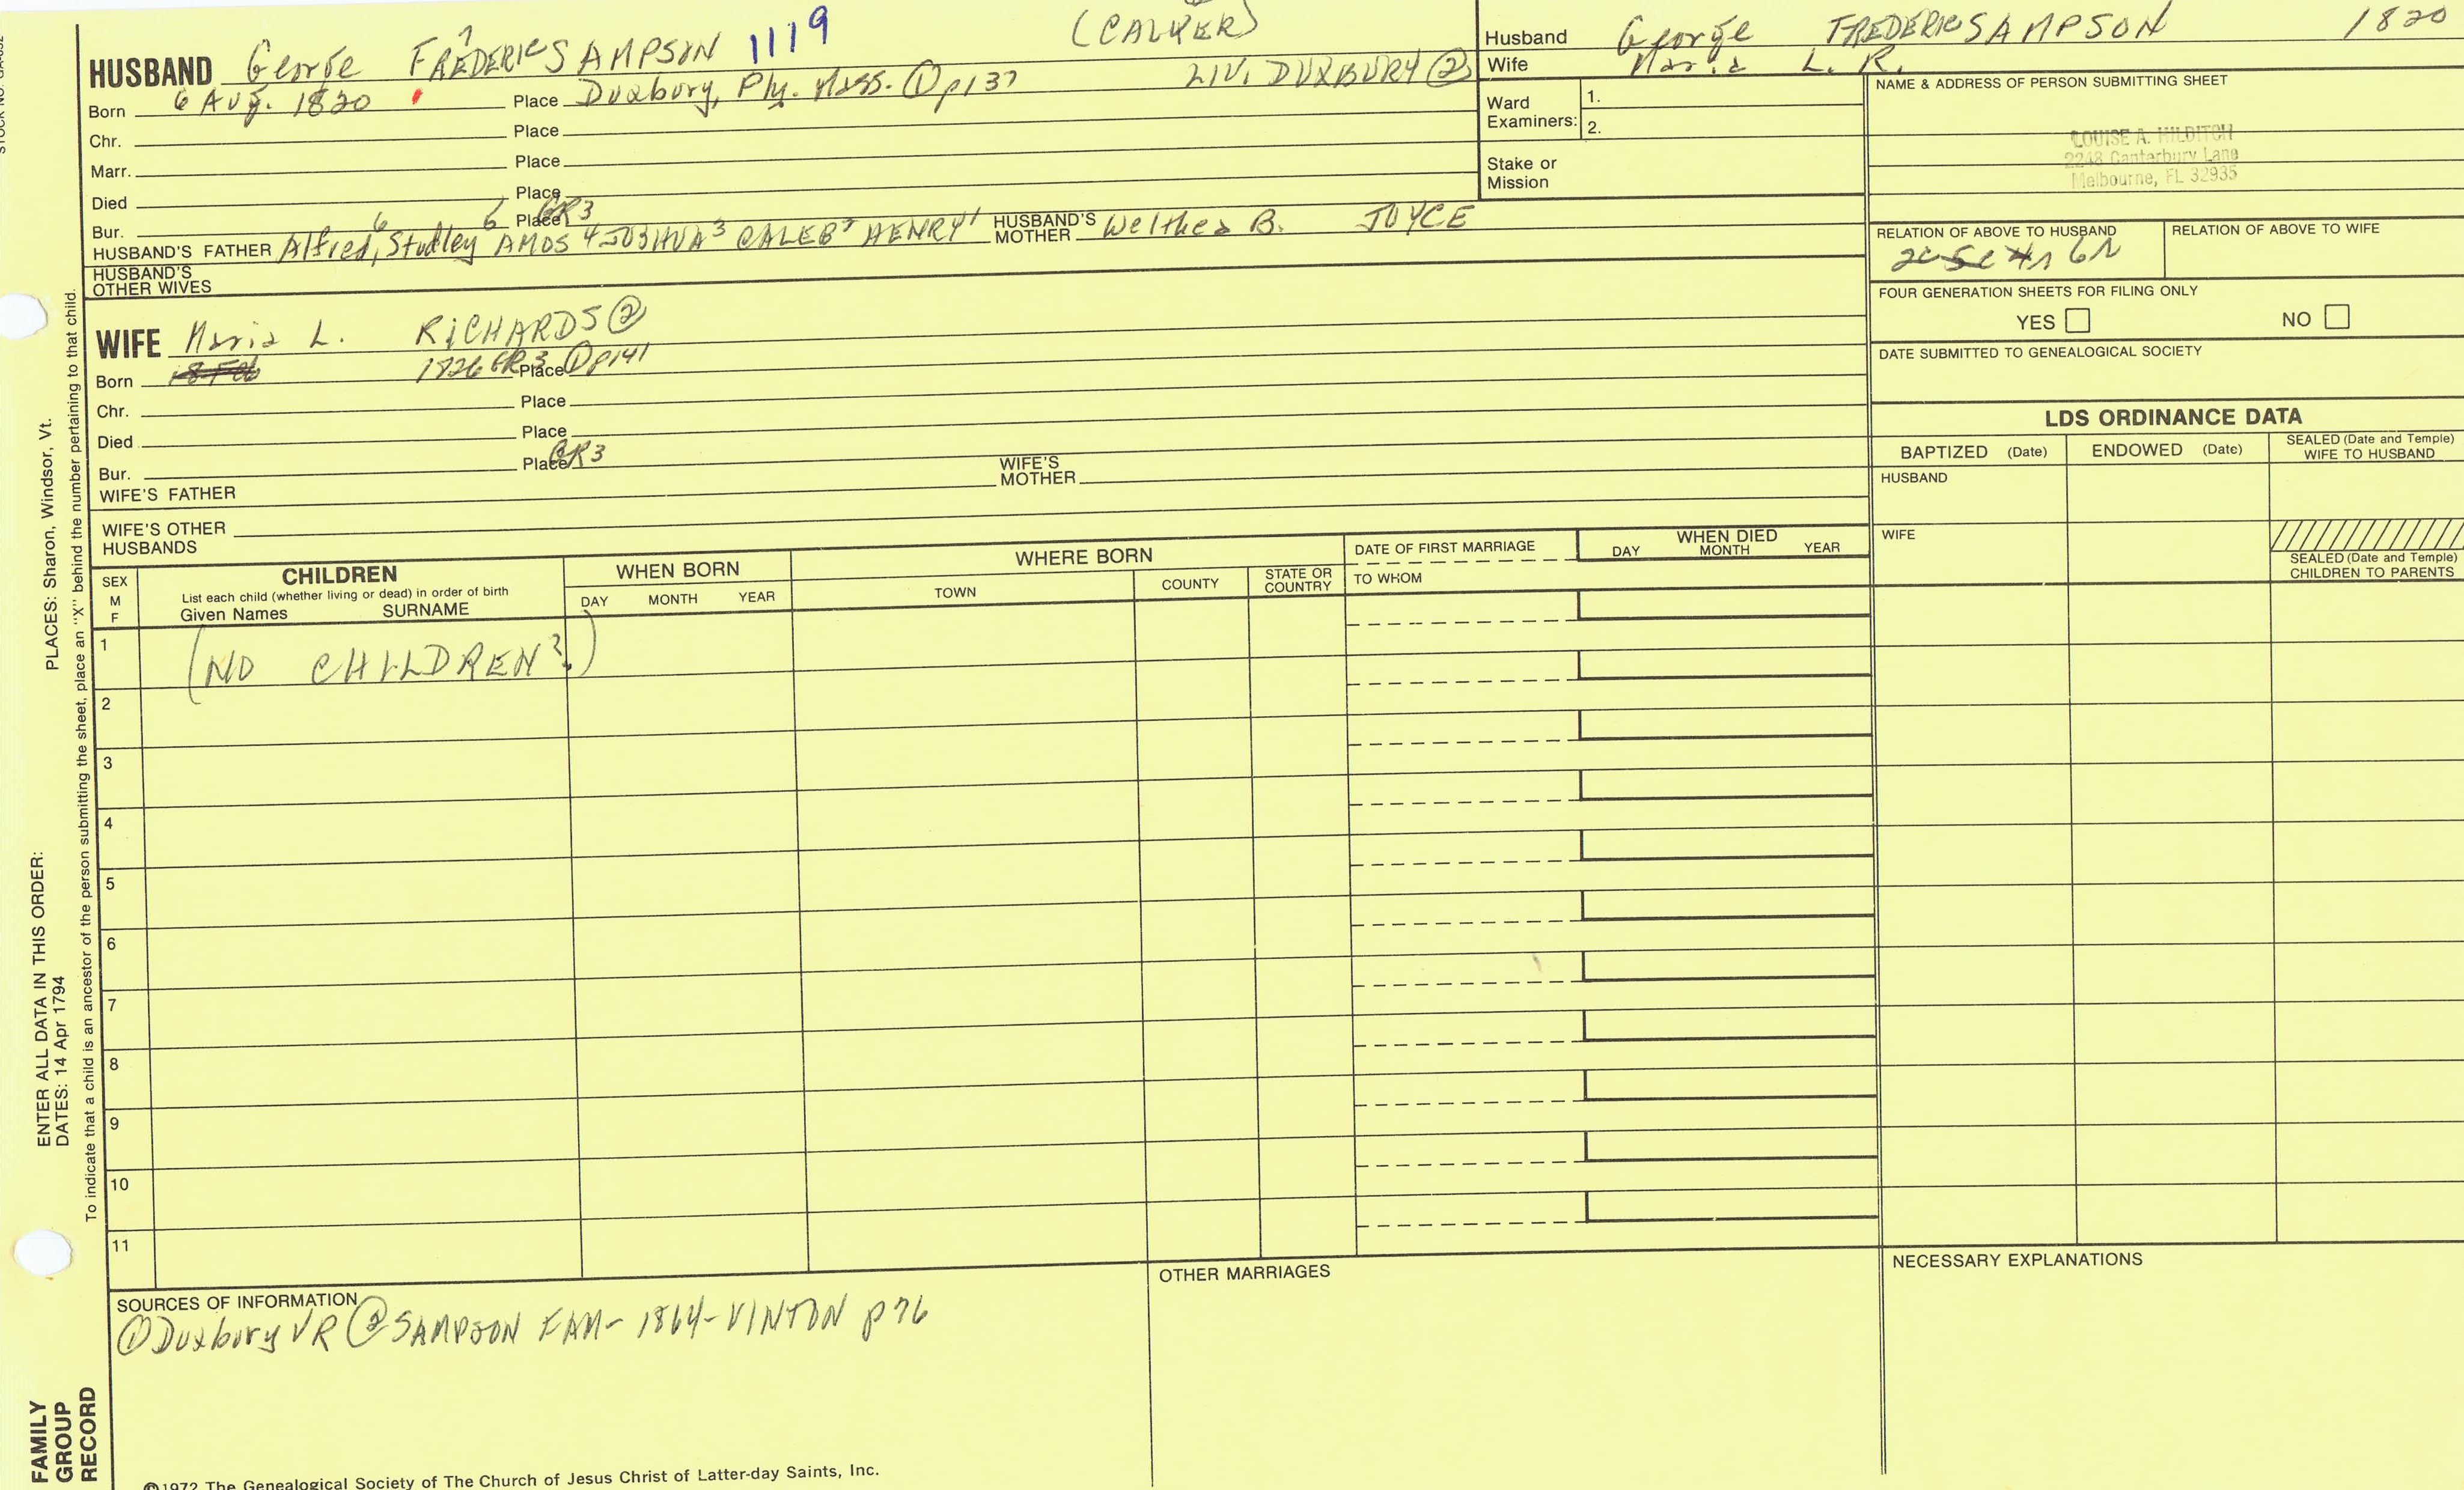 HUSBAND George FREDERIC SAMPSON 1119 (CALKER)
Born 6 Aug. 1820 Place Duxbury, Ply. Mass. ① p137 LIV. DUXBURY ②
Chr. Place
Marr. Place
Died Place
Bur. Place GR3
HUSBAND'S FATHER Alfred, Studley 6 AMOS 4 JOSHUA 3 CALEB 2 HENRY 1 HUSBAND'S MOTHER Welthea B. JOYCE
HUSBAND'S OTHER WIVES
WIFE Maria L. RICHARDS ②
Born 1826 GR3 Place ① p141
Chr. Place
Died Place
Bur. Place GR3
WIFE'S FATHER WIFE'S MOTHER
WIFE'S OTHER HUSBANDS
Husband George FREDERIC SAMPSON 1820
Wife Maria L. R.
Ward Examiners: 1.
2.
Stake or Mission
NAME & ADDRESS OF PERSON SUBMITTING SHEET
LOUISE A. HILDITCH
2248 Canterbury Lane
Melbourne, FL 32935
RELATION OF ABOVE TO HUSBAND RELATION OF ABOVE TO WIFE
FOUR GENERATION SHEETS FOR FILING ONLY
YES NO
DATE SUBMITTED TO GENEALOGICAL SOCIETY
LDS ORDINANCE DATA
BAPTIZED (Date) ENDOWED (Date) SEALED (Date and Temple) WIFE TO HUSBAND
HUSBAND
WIFE
SEALED (Date and Temple) CHILDREN TO PARENTS
SEX M F
CHILDREN
List each child (whether living or dead) in order of birth
Given Names SURNAME
WHEN BORN
DAY MONTH YEAR
WHERE BORN
TOWN COUNTY STATE OR COUNTRY
DATE OF FIRST MARRIAGE
TO WHOM
WHEN DIED
DAY MONTH YEAR
1 (NO CHILDREN?)
2
3
4
5
6
7
8
9
10
11
SOURCES OF INFORMATION
① Duxbury VR ② SAMPSON FAM- 1864- VINTON p76
OTHER MARRIAGES
NECESSARY EXPLANATIONS
©1972 The Genealogical Society of The Church of Jesus Christ of Latter-day Saints, Inc.
FAMILY GROUP RECORD
ENTER ALL DATA IN THIS ORDER:
DATES: 14 Apr 1794
PLACES: Sharon, Windsor, Vt.
To indicate that a child is an ancestor of the person submitting the sheet, place an "X" behind the number pertaining to that child.